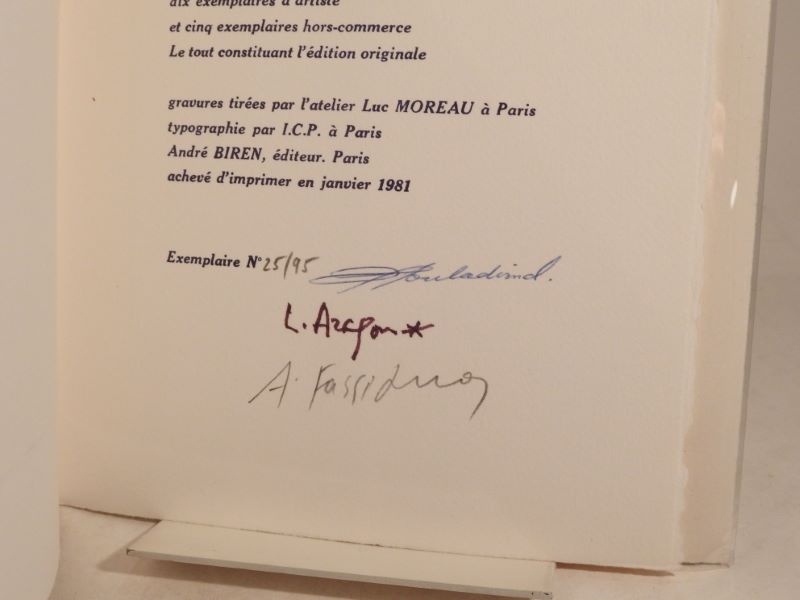 dix exemplaires d'artiste
et cinq exemplaires hors-commerce
Le tout constituant l'édition originale
gravures tirées par l'atelier Luc MOREAU à Paris
typographie par I.C.P. à Paris
André BIREN, éditeur. Paris
achevé d'imprimer en janvier 1981
Exemplaire N° 25/95
L. Aragon*
A. Fassianos